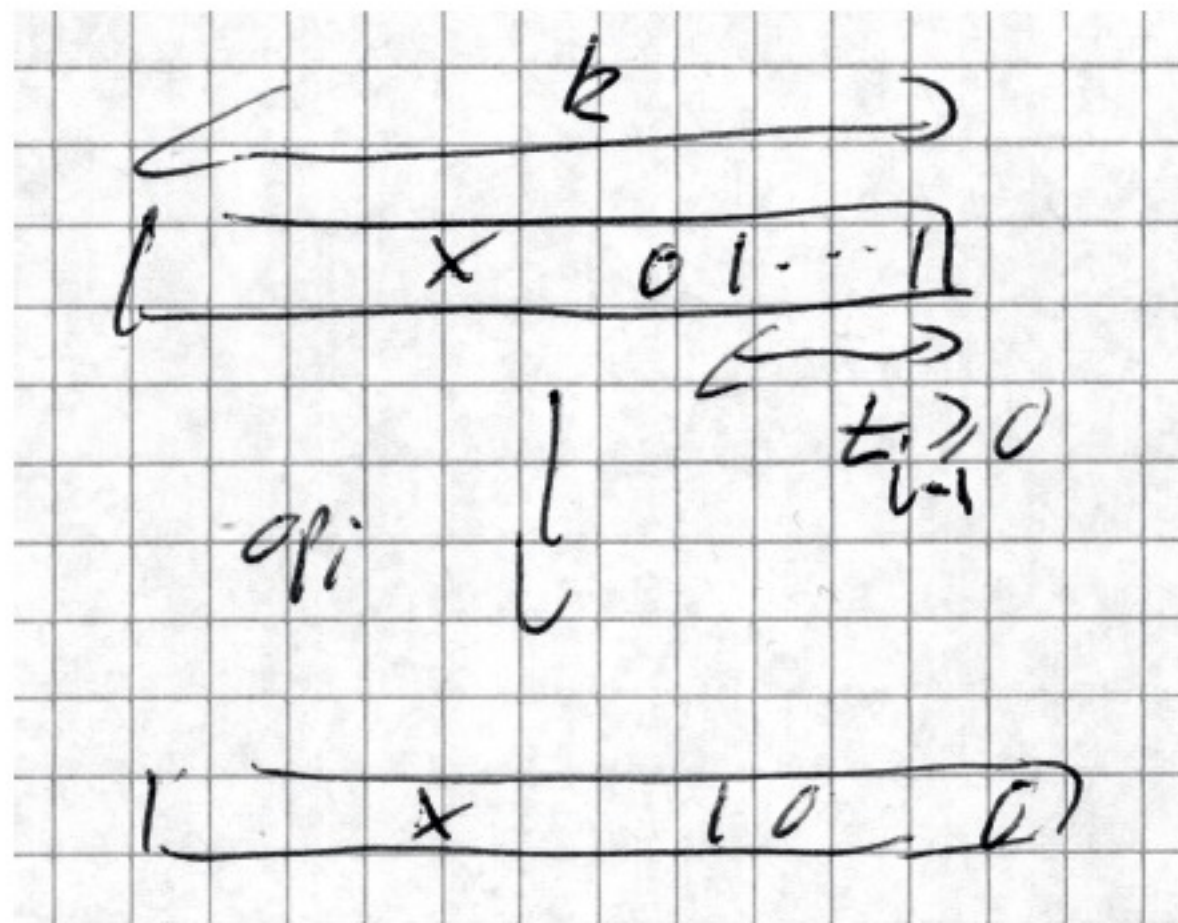 k
x 0 1 .... 1
t_{i-1} ≥ 0
op_i
x 1 0 .. 0